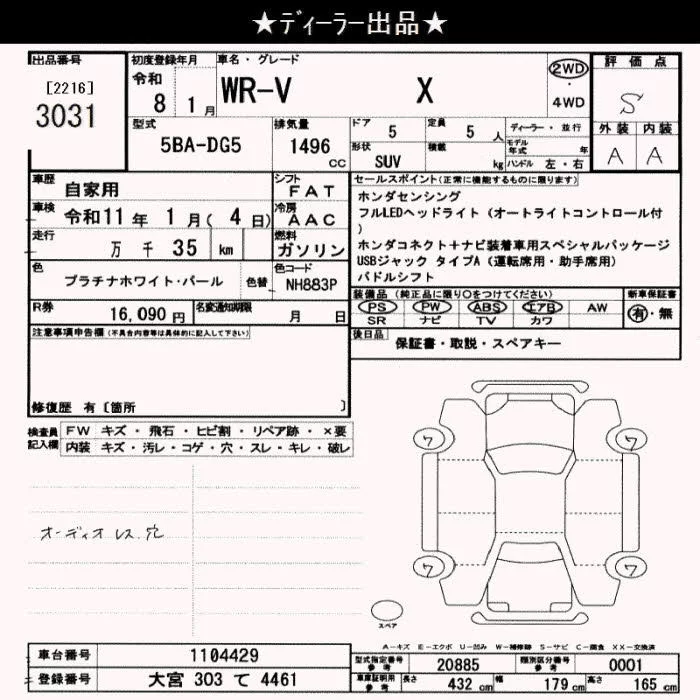 ★ディーラー出品★
出品番号
[2216]
3031
初度登録年月
令和
8 1 月
車名・グレード
WR-V X
2WD
・
4WD
評価点
S
外装 内装
A A
型式
5BA-DG5
排気量
1496
cc
ドア
5
定員
5 人
形状
SUV
積載
kg
ディーラー・並行
モデル年式 年
ハンドル 左・右
車歴
自家用
シフト
FAT
車検
令和11 年 1 月( 4 日)
冷房
AAC
走行
万 千 35 km
燃料
ガソリン
色
プラチナホワイト・パール
色替
色コード
NH883P
R券
16,090 円
名変通知期限
月 日
セールスポイント(正常に機能するものに限ります)
ホンダセンシング
フルLEDヘッドライト(オートライトコントロール付
)
ホンダコネクト+ナビ装着車用スペシャルパッケージ
USBジャック タイプA(運転席用・助手席用)
パドルシフト
装備品(純正品に限り○をつけてください)
PS PW ABS エアB AW
SR ナビ TV カワ
新車保証書
有・無
後日品
保証書・取説・スペアキー
注意事項申告欄(不具合内容等は具体的に記入して下さい)
修復歴 有〔箇所 〕
検査員
記入欄
FW キズ・飛石・ヒビ割・リペア跡・×要
内装 キズ・汚レ・コゲ・穴・スレ・キレ・破レ
オーディオレス穴
ワ ワ
ワ ワ
スペア
A-キズ E-エクボ U-凹み W-補修跡 S-サビ C-腐食 XX-交換済
車台番号
1104429
登録番号
大宮 303 て 4461
型式指定番号
参考
20885
類別区分番号
参考
0001
車庫証明用
参考
長さ 432 cm 幅 179 cm 高さ 165 cm